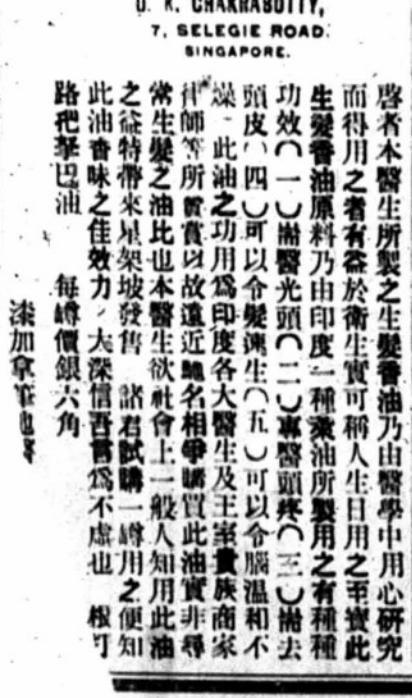 D. K. CHAKRABUTTY,
7, SELEGIE ROAD.
SINGAPORE.
啓者本醫生所製之生髮香油乃由醫學中用心研究
而得用之者有益於衛生實可稱人生日用之至寶此
生髮香油原料乃由印度一種油所製用之有種種
功效（一）耑醫光頭（二）專醫頭疼（三）耑去
頭皮（四）可以令髮速生（五）可以令腦溫和不
燥 此油之功用爲印度各大醫生及王室貴族商家
律師等所賞以故遠近馳名相爭購買此油實非尋
常生髮之油比也本醫生欲社會上一般人知用此油
之益特帶來星架坡發售 諸君試購一罇用之便知
此油香味之佳效力大深信吾言爲不虛也
路把拏巴油 每罇價銀六角
漆加拿